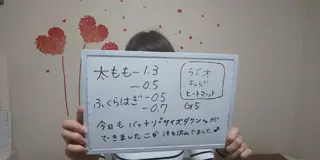 太もも-1.3
-0.5
ふくらはぎ-0.5
-0.7
ラジオ
キャビ
ヒートマット
G5
今日もバッチリサイズダウン
できました
汗も沢山でました